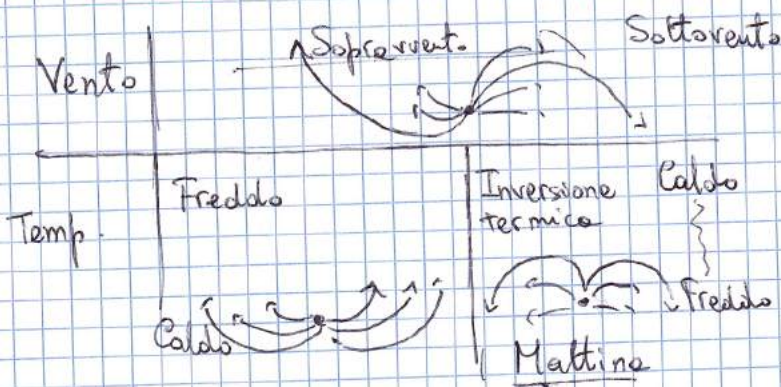 Vento
Sopravvento
Sottovento
Temp.
Freddo
Caldo
Inversione
termica
Caldo
Freddo
Mattina